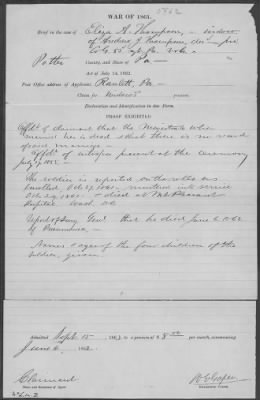 5862
WAR OF 1861.
Brief in the case of Eliza A. Thompson, widow
of Andrew J. Thompson, dec
Co. G. 85" Pa. Vols.
Potter County, and State of Pa
Act of July 14, 1862.
Post Office address of Applicant: Roulett, Pa.
Claim for Widow's pension.
Declaration and Identification in due Form.
PROOF EXHIBITED:
Affd't of claimant that the Magistrate who
married her is dead & that there is no record
of said marriage
Affd't of witness present at the Ceremony
July 4, 1852
The soldier is reported on the rolls as
enrolled Oct 27, 1861 mustered into service
died at Mt. Pleasant
Hospital Wash. D.C.
Report of Surg. Gen'l that he died June 6, 1862
of Pneumonia
Names & ages of the four children of the
soldier, given.
Admitted Sept. 15 to a pension of $ 8.00 per month, commencing
June 6, 1862.
Claimant
Name and Residence of Agent.